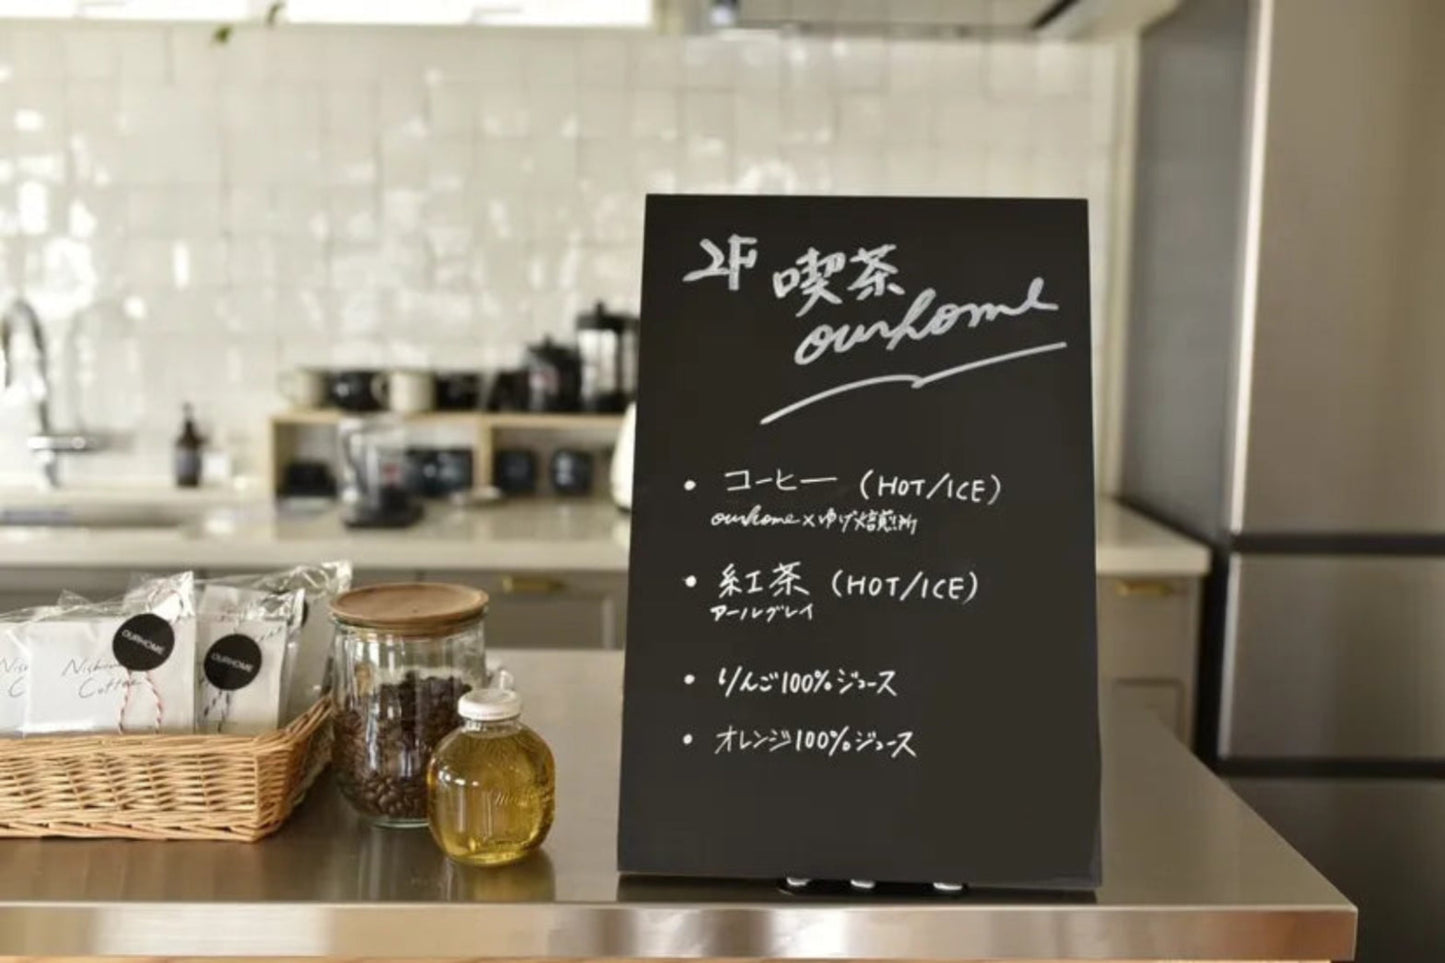 2F 喫茶
ourhome
• コーヒー (HOT/ICE)
ourhome×ゆげ焙煎所
• 紅茶 (HOT/ICE)
アールグレイ
• りんご100%ジュース
• オレンジ100%ジュース
OURHOME
OURHOME
Coffee